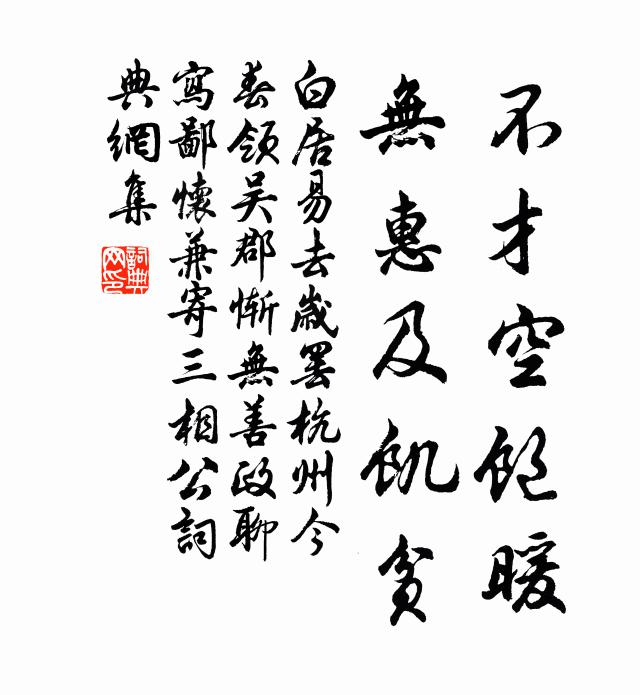 不才空飽暖
無惠及飢貧
白居易去歲罷杭州今
春領吴郡慚無善政聊
寫鄙懷兼寄三相公詞
典網集
詞典
网印